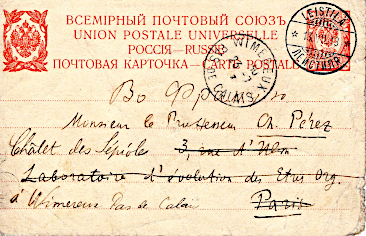 ВСЕМІРНЫЙ ПОЧТОВЫЙ СОЮЗЪ
UNION POSTALE UNIVERSELLE
РОССІЯ—RUSSIE
ПОЧТОВАЯ КАРТОЧКА—CARTE POSTALE
LEISTILÄ
ЛЕЙСТИЛЯ
WIMEREUX
PAS DE CALAIS
Во Францію
Monsieur le Professeur Ch. Pérez
Châlet des Sépiole 3, rue d'Ulm
Laboratoire d'évolution des Etres Org.
à Wimereux Pas de Calais Paris